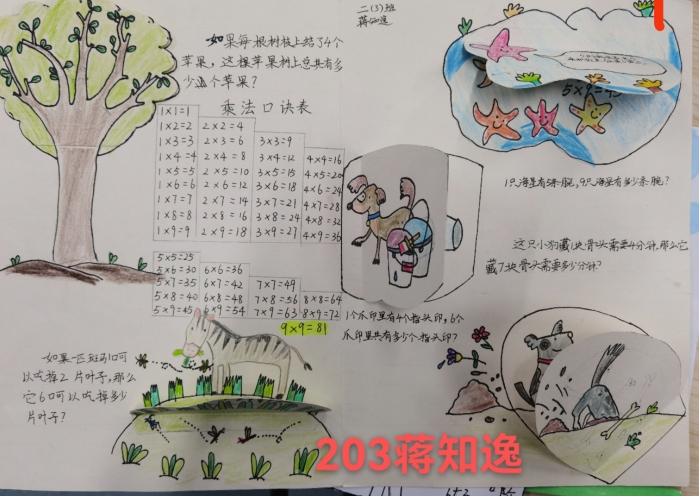 如果每根树枝上结了4个
苹果,这棵苹果树上总共有多
少个苹果?
乘法口诀表
1×1=1
1×2=2 2×2=4
1×3=3 2×3=6 3×3=9
1×4=4 2×4=8 3×4=12 4×4=16
1×5=5 2×5=10 3×5=15 4×5=20
1×6=6 2×6=12 3×6=18 4×6=24
1×7=7 2×7=14 3×7=21 4×7=28
1×8=8 2×8=16 3×8=24 4×8=32
1×9=9 2×9=18 3×9=27 4×9=36
5×5=25
5×6=30 6×6=36
5×7=35 6×7=42 7×7=49
5×8=40 6×8=48 7×8=56 8×8=64
5×9=45 6×9=54 7×9=63 8×9=72
9×9=81
如果一匹斑马1口可
以吃掉2片叶子,那么
它6口可以吃掉多少
片叶子?
二(3)班
蒋知逸
5×9=45
1只海星有5条腕,9只海星有多少条腕?
这只小狗藏1块骨头需要4分钟,那么它
藏7块骨头需要多少分钟?
1个爪印里有4个指头印,6个
爪印里共有多少个指头印?
203蒋知逸